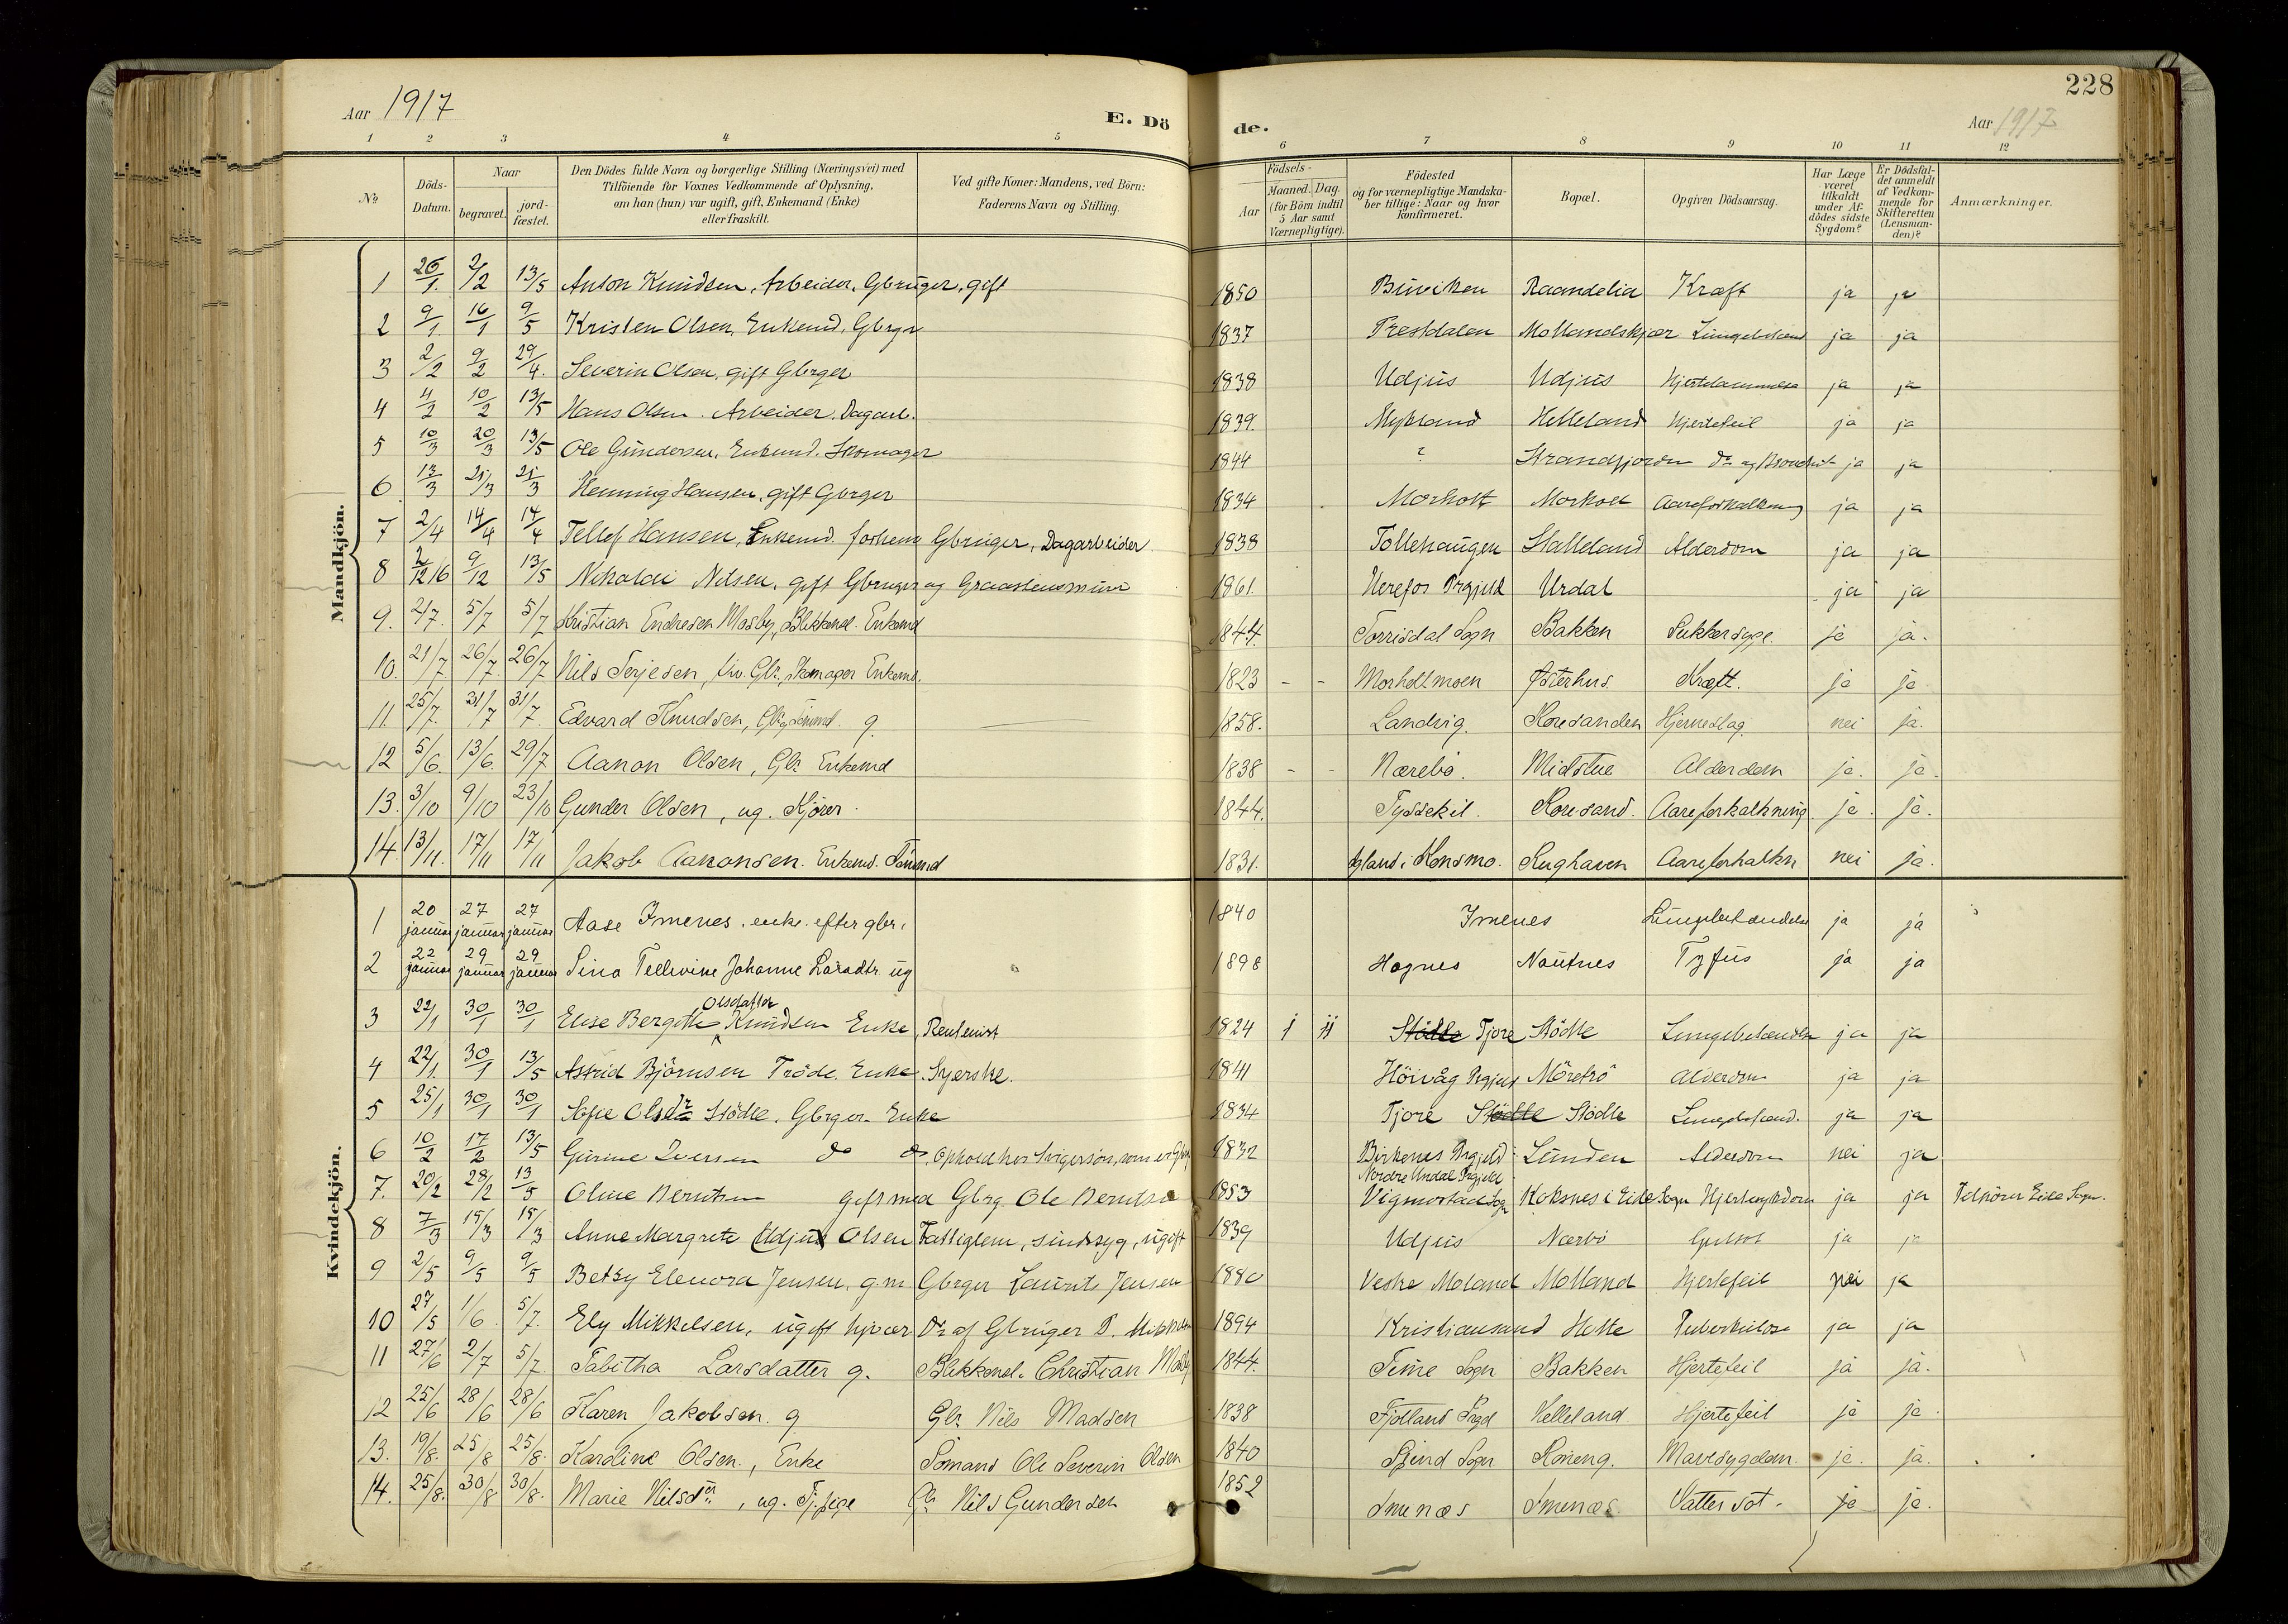 228
Aar 1917
E. Dö
de.
Aar 1917
1 2 3 4 5 6 7 8 9 10 11 12
No
Döds-Datum.
Naar
begravet.
jord-fæstet.
Den Dödes fulde Navn og borgerlige Stilling (Næringsvei) med Tilföiende for Voxnes Vedkommende af Oplysning, om han (hun) var ugift, gift, Enkemand (Enke) eller fraskilt.
Ved gifte Koner: Mandens, ved Börn: Faderens Navn og Stilling.
Födsels-
Aar
Maaned. Dag.
(for Börn indtil 5 Aar samt Værnepligtige).
Födested og for værnepligtige Mandska-ber tillige: Naar og hvor konfirmeret.
Bopæl.
Opgiven Dödsaarsag.
Har Læge været tilkaldt under Af-dödes sidste Sygdom?
Er Dödsfal-det anmeldt af Vedkom-mende for Skifteretten (Lensman-den)?
Anmærkninger.
Mandkjön.
1 26/1. 2/2 13/5 Anton Knudsen, Arbeider, Gbruger, gift 1850 Buviken Raamdelia Kræft ja ja
2 9/1 16/1 9/5 Kristen Olsen, Enkemd, Gbrgr 1837 Trestdalen Mollandskjær ja ja
3 2/2 9/2 29/4. Severin Olsen, gift Gbrger 1838 Udjus Udjus ja ja
4 4/2 10/2 13/5 Hans Olsen. Arbeider. Dagarb. 1839. Mykland Helleland Hjertefeil ja ja
5 10/3 20/3 13/5 Ole Gundersen, Enkemd. Skomager 1844 ? Strandfjorden Do og Bronchit ja ja
6 13/3 21/3 21/3 Henning Hansen, gift Gbrger 1834 Morholt Morholt Aareforkalkning ja ja
7 2/4 14/4 14/4 Tellef Hansen, Enkemd. forhenv Gbruger, Dagarbeider. 1838 Tollehaugen Stalleland Alderdom ja ja
8 2/12 16 9/12 13/5 Nikolai Nilsen, gift Gbruger og Graastensmurer 1861. Herefos Prgjeld Urdal ja ja
9. 2/7. 5/7 5/7 Kristian Endresen Mosby, Blikkensl. Enkemd 1844. Torrisdal Sogn Bakken Sukkersyge. ja ja.
10. 21/7. 26/7. 26/7 Nils Terjesen, fhv. Gbr., Skomager Enkemd. 1823 - - Morholtmoen Østerhus Kræft. ja ja
11. 25/7. 31/7 31/7. Edvard Knudsen, g. 1858. Landvig. Koresanden Hjerneslag. nei ja.
12 5/6. 13/6. 29/7 Aanon Olsen, Gbr. Enkemd 1838 - - Nærebö. Midstue Alderdom ja. ja.
13. 3/10 9/10 23/10 Gunder Olsen, ug. Kjörer. 1844. Tyssekil. Koresand. Aareforkalkning ja. ja.
14. 13/11. 17/11 17/11 Jakob Aanonsen. Enkemd. Tömmd 1831. Konsmo. Rughaven Aareforkalkn nei ja.
Kvindekjön.
1 20 januar 27 januar 27 januar Aase Imenes, enke efter gbr. 1840 Imenes Lungebetændelse ja ja
2 22 januar 29 januar 29 januar Sina Tellevine Johanne Larsdtr ug 1898 Hagnes Nautnes Tyfus ja ja
3 22/1 30/1 30/1 Elise Bergitte Olsdatter Knudsen Enke, Rentenist 1824 j ij Stödle Tjore Stödle Lungebetændelse ja ja
4 22/1. 30/1 13/5 Astrid Björnsen Tröde. Enke. Syerske. 1841 Höivåg Prgjeld Möretrö Alderdom ja ja
5 25/1 30/1 30/1 Sofie Olsdr Stödle. Gbrger. Enke 1834 Tjore Stödle Stödle Lungebetænd. ja ja
6 10/2 17/2 13/5 Gurine Iversen do do, Ophold hos Svigersön, som er Gbrg 1832 Birkenes Prgjeld Lunden Alderdom nei ja
7. 20/2 28/2 13/5 Oline Berntsen gift med Gbrg. Ole Berntsen 1853 Nordre Undal Prgjeld Vigmostad Sogn Koksnes i Eide Sogn Hjertesygdom ja ja Tilhörer Eide Sogn.
8 7/3 15/3 15/3 Anne Margrete (Udjus) Olsen Fattiglem, sindssyg, ugift 1839 Udjus Nærbö Gulsot ja ja
9 2/5 9/5 9/5 Betsy Elenora Jensen, g.m. Gbrger Laurits Jensen 1880 Veske Moland Molland Hjertefeil nei ja
10 27/5 1/6. 5/7. Ely Mikkelsen, ugift hjvær Dr af Gbruger P. Mikkelsen 1894 Kristiansand Hette Tuberkulose ja ja
11 27/6 2/7 5/7. Tabitha Larsdatter g. Blikkensl. Christian Mosby 1844. Time Sogn Bakken Hjertefeil ja ja.
12 25/6 28/6 28/6 Karen Jakobsen. g Gbr. Nils Madsen 1838 Fjotland Prgd Helleland Hjertefeil ja ja.
13. 19/8. 25/8 25/8. Karoline Olsen, Enke Sömand Ole Severin Olsen 1840 Spind Sogn Roneng. Mavesygdom. ja. ja.
14. 25/8. 30/8 30/8. Marie Nilsdtr, ug. Tj.pige Gbr Nils Gundersen 1852 Imenæs Imenæs. Vattersot. ja ja.